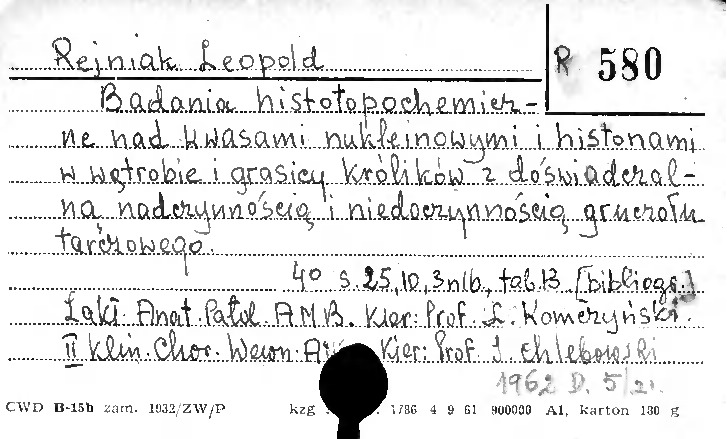 Rejniak Leopold
R 580
Badania histotopochemicz-
ne nad kwasami nukleinowymi i histonami
w wątrobie i grasicy królików z doświadczal-
ną nadczynnością i niedoczynnością gruczołu
tarczowego.
4° s. 25, 10, 3 nlb., tab. 13 [bibliogr.]
Zakł. Anat. Patol. AMB. Kier: Prof. L. Komczyński.
II Klin. Chor. Wewn. Kier: Prof. J. Chlebowski
1962 D. 5/21.
CWD B-15b zam. 1932/ZW/P kzg 1786 4 9 61 900000 A1, karton 180 g